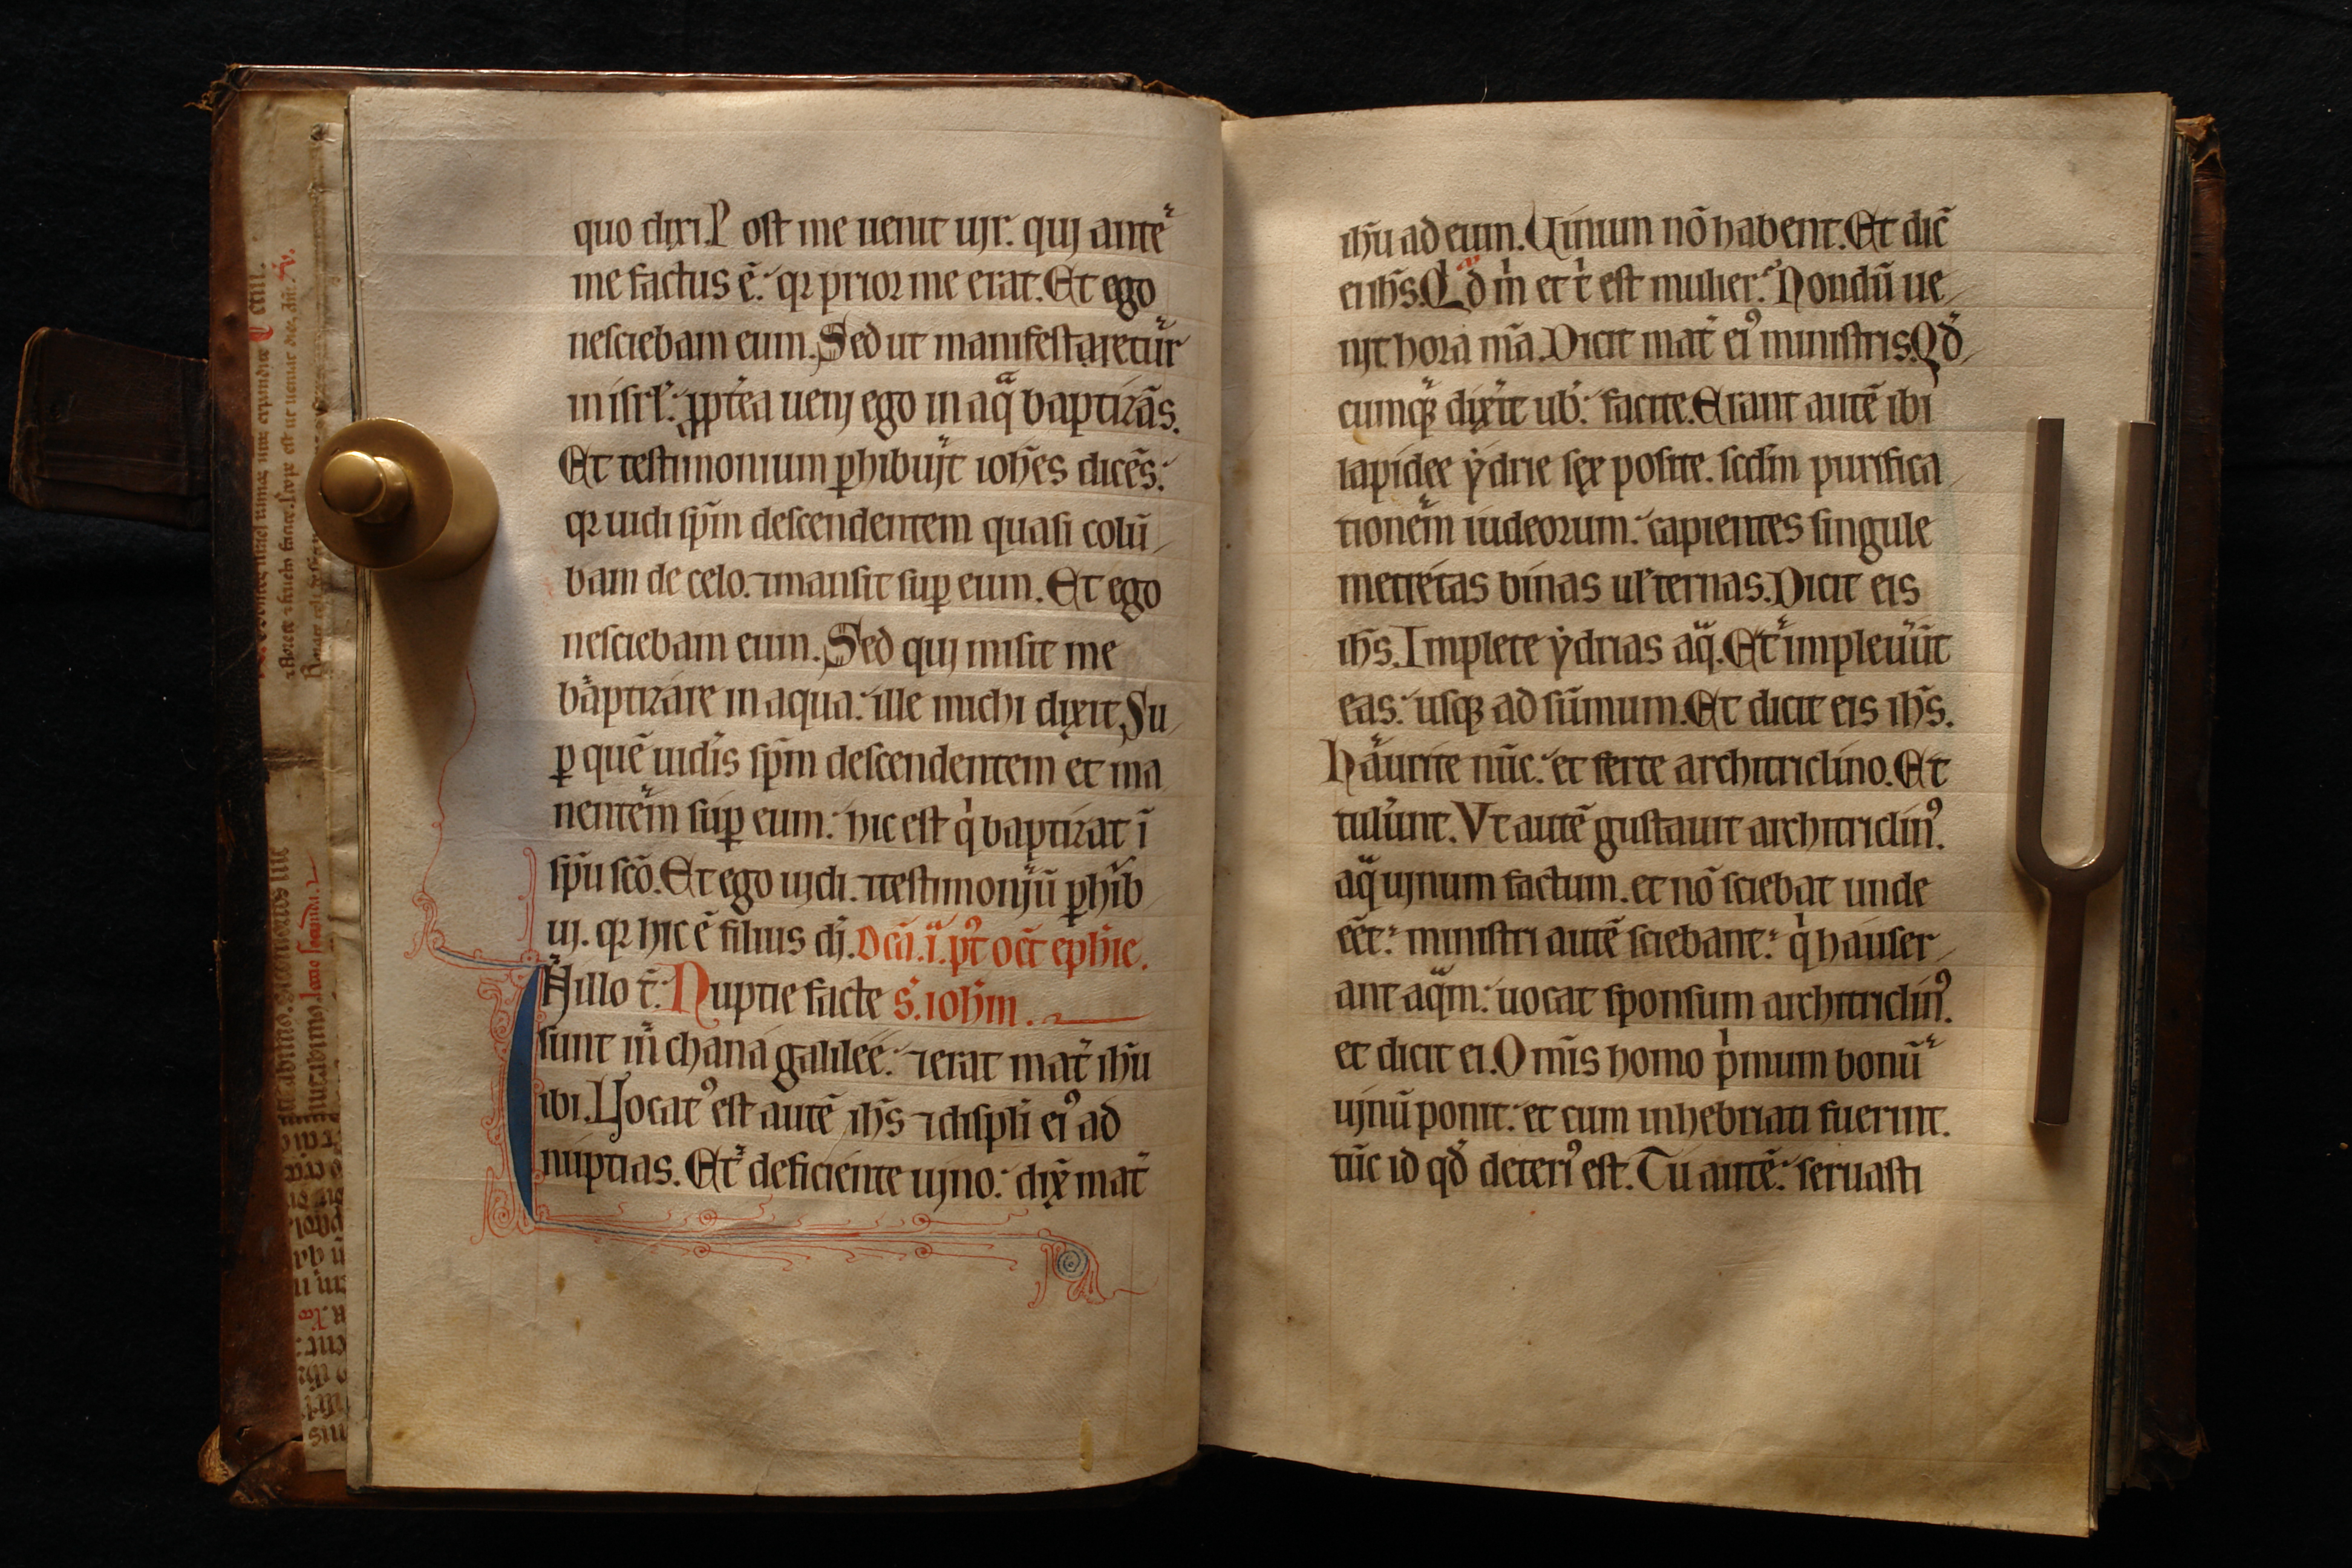 quo dixi. Post me uenit uir. qui ante
me factus ē. qꝛ prior me erat. Et ego
nesciebam eum. Sed ut manifestaretur
in isrl̓. ꝓpt̓ea ueni ego in aq̃ baptizãs.
Et testimonium ꝑhibuit ioh̃es dicẽs.
qꝛ uidi sp̃m descendentem quasi colũ
bam de celo. ⁊ mansit suꝑ eum. Et ego
nesciebam eum. Sed qui misit me
baptizare in aqua. ille michi dixit. Su
ꝑ quẽ uid̓is sp̃m descendentem et ma
nentem suꝑ eum. hic est q̇ baptizat ĩ
sp̃u sc̃o. Et ego uidi. ⁊ testimoniũ ꝑhib
ui. qꝛ hic ē filius di. Dcã .i. pꝰt oct̃ eph̃ie.
Jn illo t̃. Nuptie facte s. ioh̃m.
sunt in chana galilee. ⁊ erat mat̓ ih̃u
ibi. Uocatꝰ est autẽ ih̃s ⁊ discipli eiꝰ ad
nuptias. Et deficiente uino. dix̃ mat̓
ih̃u ad eum. Uinum nõ habent. Et dic̃
ei ih̃s. Qd̃ m̓ et t̓ est mulier. Nondũ ue
nit hora m̃a. Dicit mat̓ eiꝰ ministris. Qd̃
cumqꝫ dix̓it ub̓. facite. Erant autẽ ibi
lapidee ẏdrie sex posite. scd̃m purifica
tionem iudeorum. capientes singule
metretas binas ul̓ ternas. Dicit eis
ih̃s. Implete ẏdrias aq̃. Et impleuũt
eas. usqꝫ ad sũmum. Et dicit eis ih̃s.
haurite nũc. et ferte architriclino. Et
tul̓unt. Vt autẽ gustauit architriclinꝰ.
aq̃ uinum factum. et nõ sciebat unde
eẽt. ministri autẽ sciebant. q̇ hauser
ant aq̃m. uocat sponsum architriclinꝰ.
et dicit ei. Om̃is homo p̓mum bonũ
uinũ ponit. et cum inhebriati fuerint.
tũc id qd̃ deteriꝰ est. Tu autẽ. seruasti